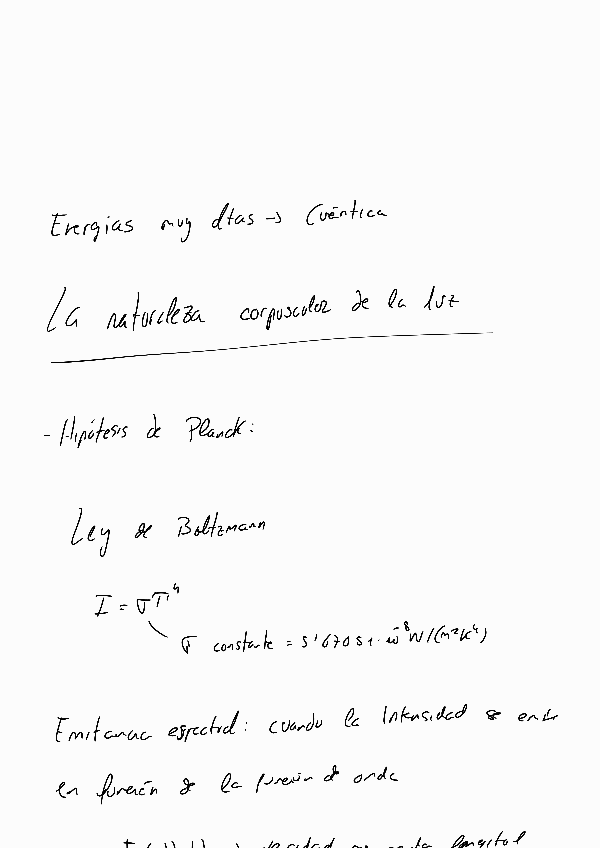 Energias muy altas → Cuántica
La naturaleza corpuscular de la luz
- Hipótesis de Planck:
Ley de Boltzmann
I = σT⁴
σ constante = 5'67051·10⁻⁸W/(m²K⁴)
Emitancia espectral: cuando la intensidad se
en función de la función de onda